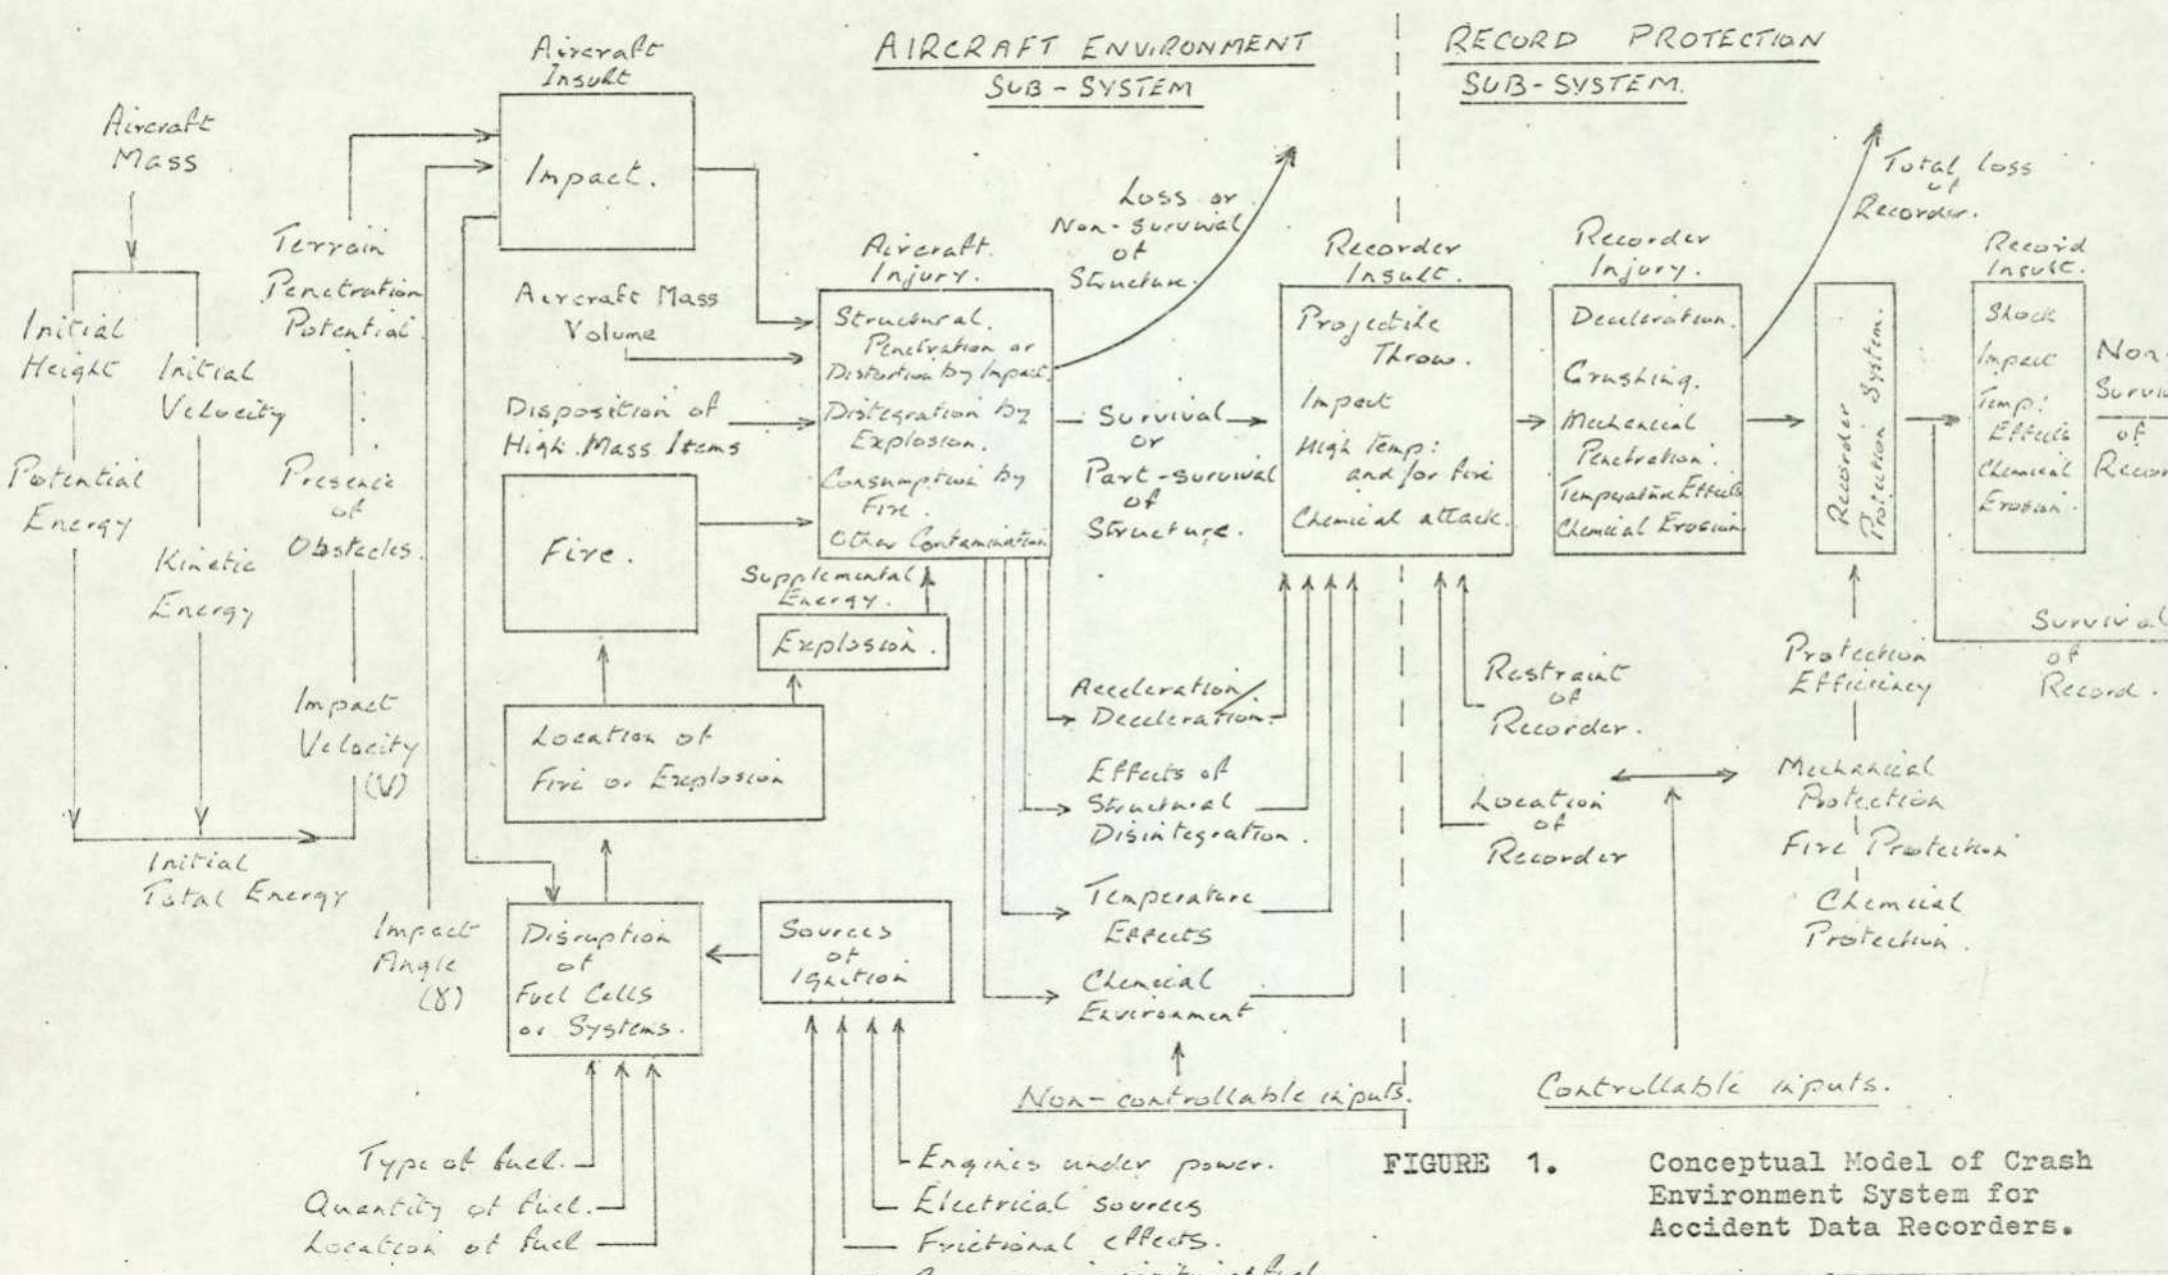 AIRCRAFT ENVIRONMENT
SUB-SYSTEM
RECORD PROTECTION
SUB-SYSTEM.
Aircraft
Mass
Initial
Height
Initial
Velocity
Potential
Energy
Kinetic
Energy
Initial
Total Energy
Terrain
Penetration
Potential.
Presence
of
Obstacles.
Impact
Velocity
(V)
Impact
Angle
(γ)
Aircraft
Insult
Impact.
Aircraft Mass
Volume
Disposition of
High Mass Items
Fire.
Supplemental
Energy.
Explosion.
Location of
Fire or Explosion
Disruption
of
Fuel Cells
or Systems.
Sources
of
Ignition
Type of fuel.
Quantity of fuel.
Location of fuel
Engines under power.
Electrical sources
Frictional effects.
of fuel
Aircraft
Injury.
Structural.
Penetration or
Distortion by Impact.
Distegration by
Explosion.
Consumption by
Fire.
Other Contamination
Loss or
Non-survival
of
Structure.
Survival
or
Part-survival
of
Structure.
Acceleration/
Deceleration.
Effects of
Structural
Disintegration.
Temperature
Effects
Chemical
Environment
Non-controllable inputs.
Recorder
Insult.
Projectile
Throw.
Impact
High Temp:
and/or fire
Chemical attack.
Recorder
Injury.
Deceleration.
Crushing.
Mechanical
Penetration.
Temperature Effects
Chemical Erosion
Total loss
of
Recorder.
Recorder
Protection System.
Record
Insult.
Shock
Impact
Temp:
Effects
Chemical
Erosion.
Non-
Surviv
of
Recor
Survival
of
Record.
Restraint
of
Recorder.
Location
of
Recorder
Protection
Efficiency
Mechanical
Protection
Fire Protection
Chemical
Protection.
Controllable inputs.
FIGURE 1.
Conceptual Model of Crash
Environment System for
Accident Data Recorders.